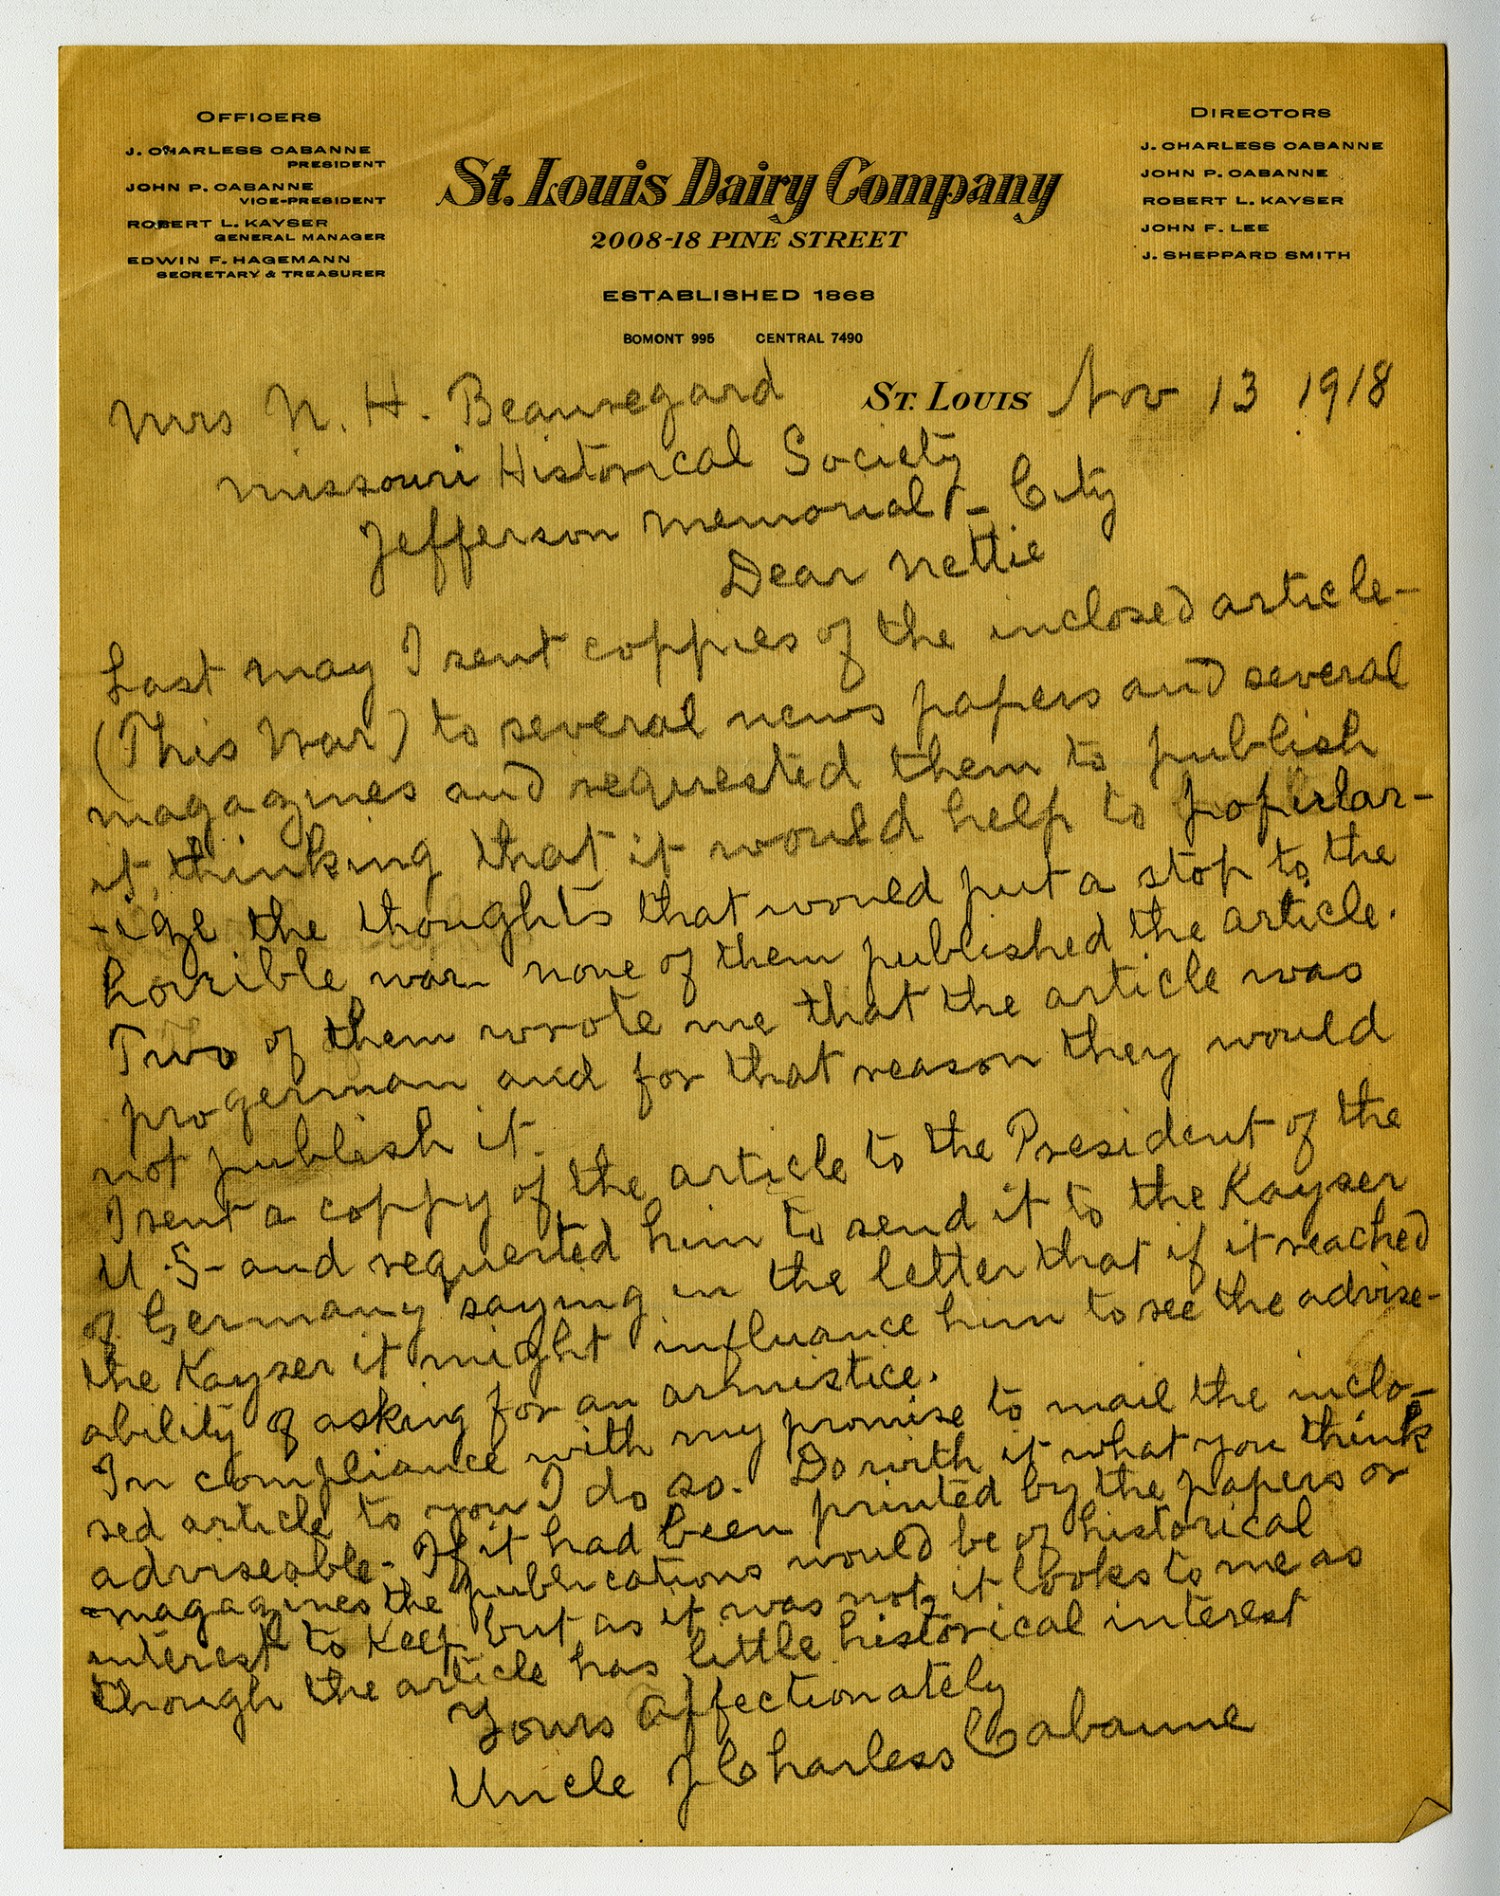 OFFICERS
J. CHARLESS CABANNE
PRESIDENT
JOHN P. CABANNE
VICE-PRESIDENT
ROBERT L. KAYSER
GENERAL MANAGER
EDWIN F. HAGEMANN
SECRETARY & TREASURER
St. Louis Dairy Company
2008-18 PINE STREET
ESTABLISHED 1868
BOMONT 995 CENTRAL 7490
DIRECTORS
J. CHARLESS CABANNE
JOHN P. CABANNE
ROBERT L. KAYSER
JOHN F. LEE
J. SHEPPARD SMITH
ST. LOUIS Nov 13 1918
Mrs N. H. Beauregard
Missouri Historical Society
Jefferson Memorial - City
Dear Nettie
Last may I sent coppies of the inclosed article-
(This War) to several news papers and several
magazines and requested them to publish
it, thinking that it would help to popular-
-ize the thoughts that would put a stop to the
horrible war- none of them published the article.
Two of them wrote me that the article was
pro german and for that reason they would
not publish it.
I sent a coppy of the article to the President of the
U.S- and requested him to send it to the Kayser
of Germany saying in the letter that if it reached
the Kayser it might influance him to see the advise-
ability of asking for an armistice.
In compliance with my promise to mail the inclo-
sed article to you I do so. Do with it what you think
adviseable- If it had been printed by the papers or
-magazines the publications would be of historical
interest to keep but as it was not, it looks to me as
though the article has little historical interest
Yours Affectionately
Uncle J Charless Cabanne